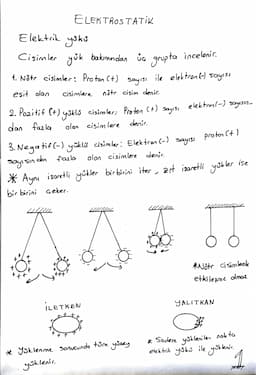 ELEKTROSTATİK
Elektrik yükü
Cisimler yük bakımından üç grupta incelenir.
1. Nötr cisimler: Proton (+) sayısı ile elektron (-) sayısı
eşit olan cisimlere nötr cisim denir.
2. Pozitif (+) yüklü cisimler: Proton (+) sayısı elektron (-) sayısın-
dan fazla olan cisimlere denir.
3. Negatif (-) yüklü cisimler: Elektron (-) sayısı proton (+)
sayısından fazla olan cisimlere denir.
* Aynı işaretli yükler birbirini iter, zıt işaretli yükler ise
birbirini çeker.
* Nötr cisimlerde
etkileşme olmaz
İLETKEN
YALITKAN
* Yüklenme sonucunda tüm yüzey
yüklenir.
* Sadece yüklenilen nokta
elektrik yükü ile yüklenir.